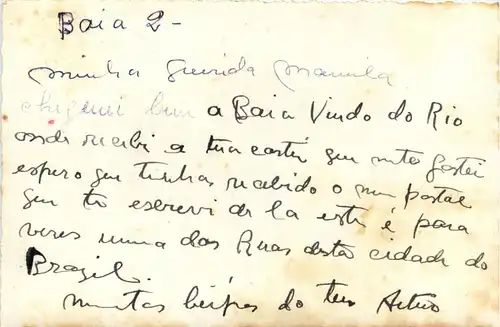 Baia 2 -
Minha querida Mamita
cheguei bem a Baia Vindo do Rio
onde recebi a tua carta que muito gostei
espero que tenhas recebido o meu postal
que te escrevi de la este é para
veres uma das Ruas desta cidade do
Brazil.
Muitos beijos do teu Artur